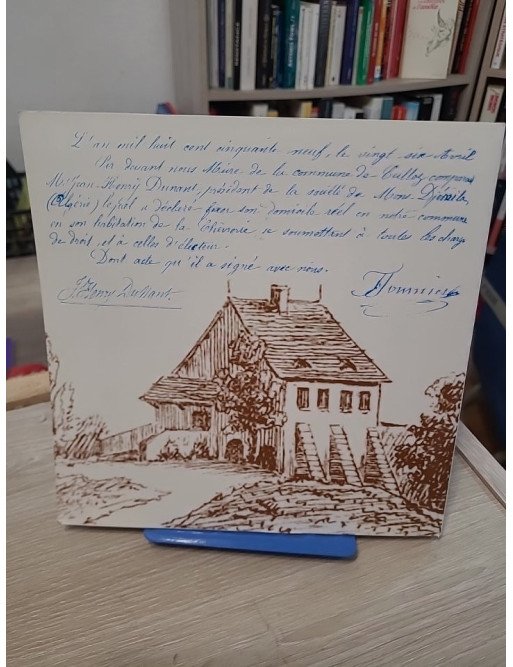 L'an mil huit cent cinquante neuf, le vingt six Avril
Par devant nous Maire de la commune de Culloz, comparu
Mr Jean Henry Dunant, président de la société de Mons Djémila
(Algérie) lequel a déclaré fixer son domicile réel en notre commune
en son habitation de la Chévrerie se soumettant à toutes les charges
de droit, et à celles d'électeur.
Dont acte qu'il a signé avec nous.
J. Henry Dunant.